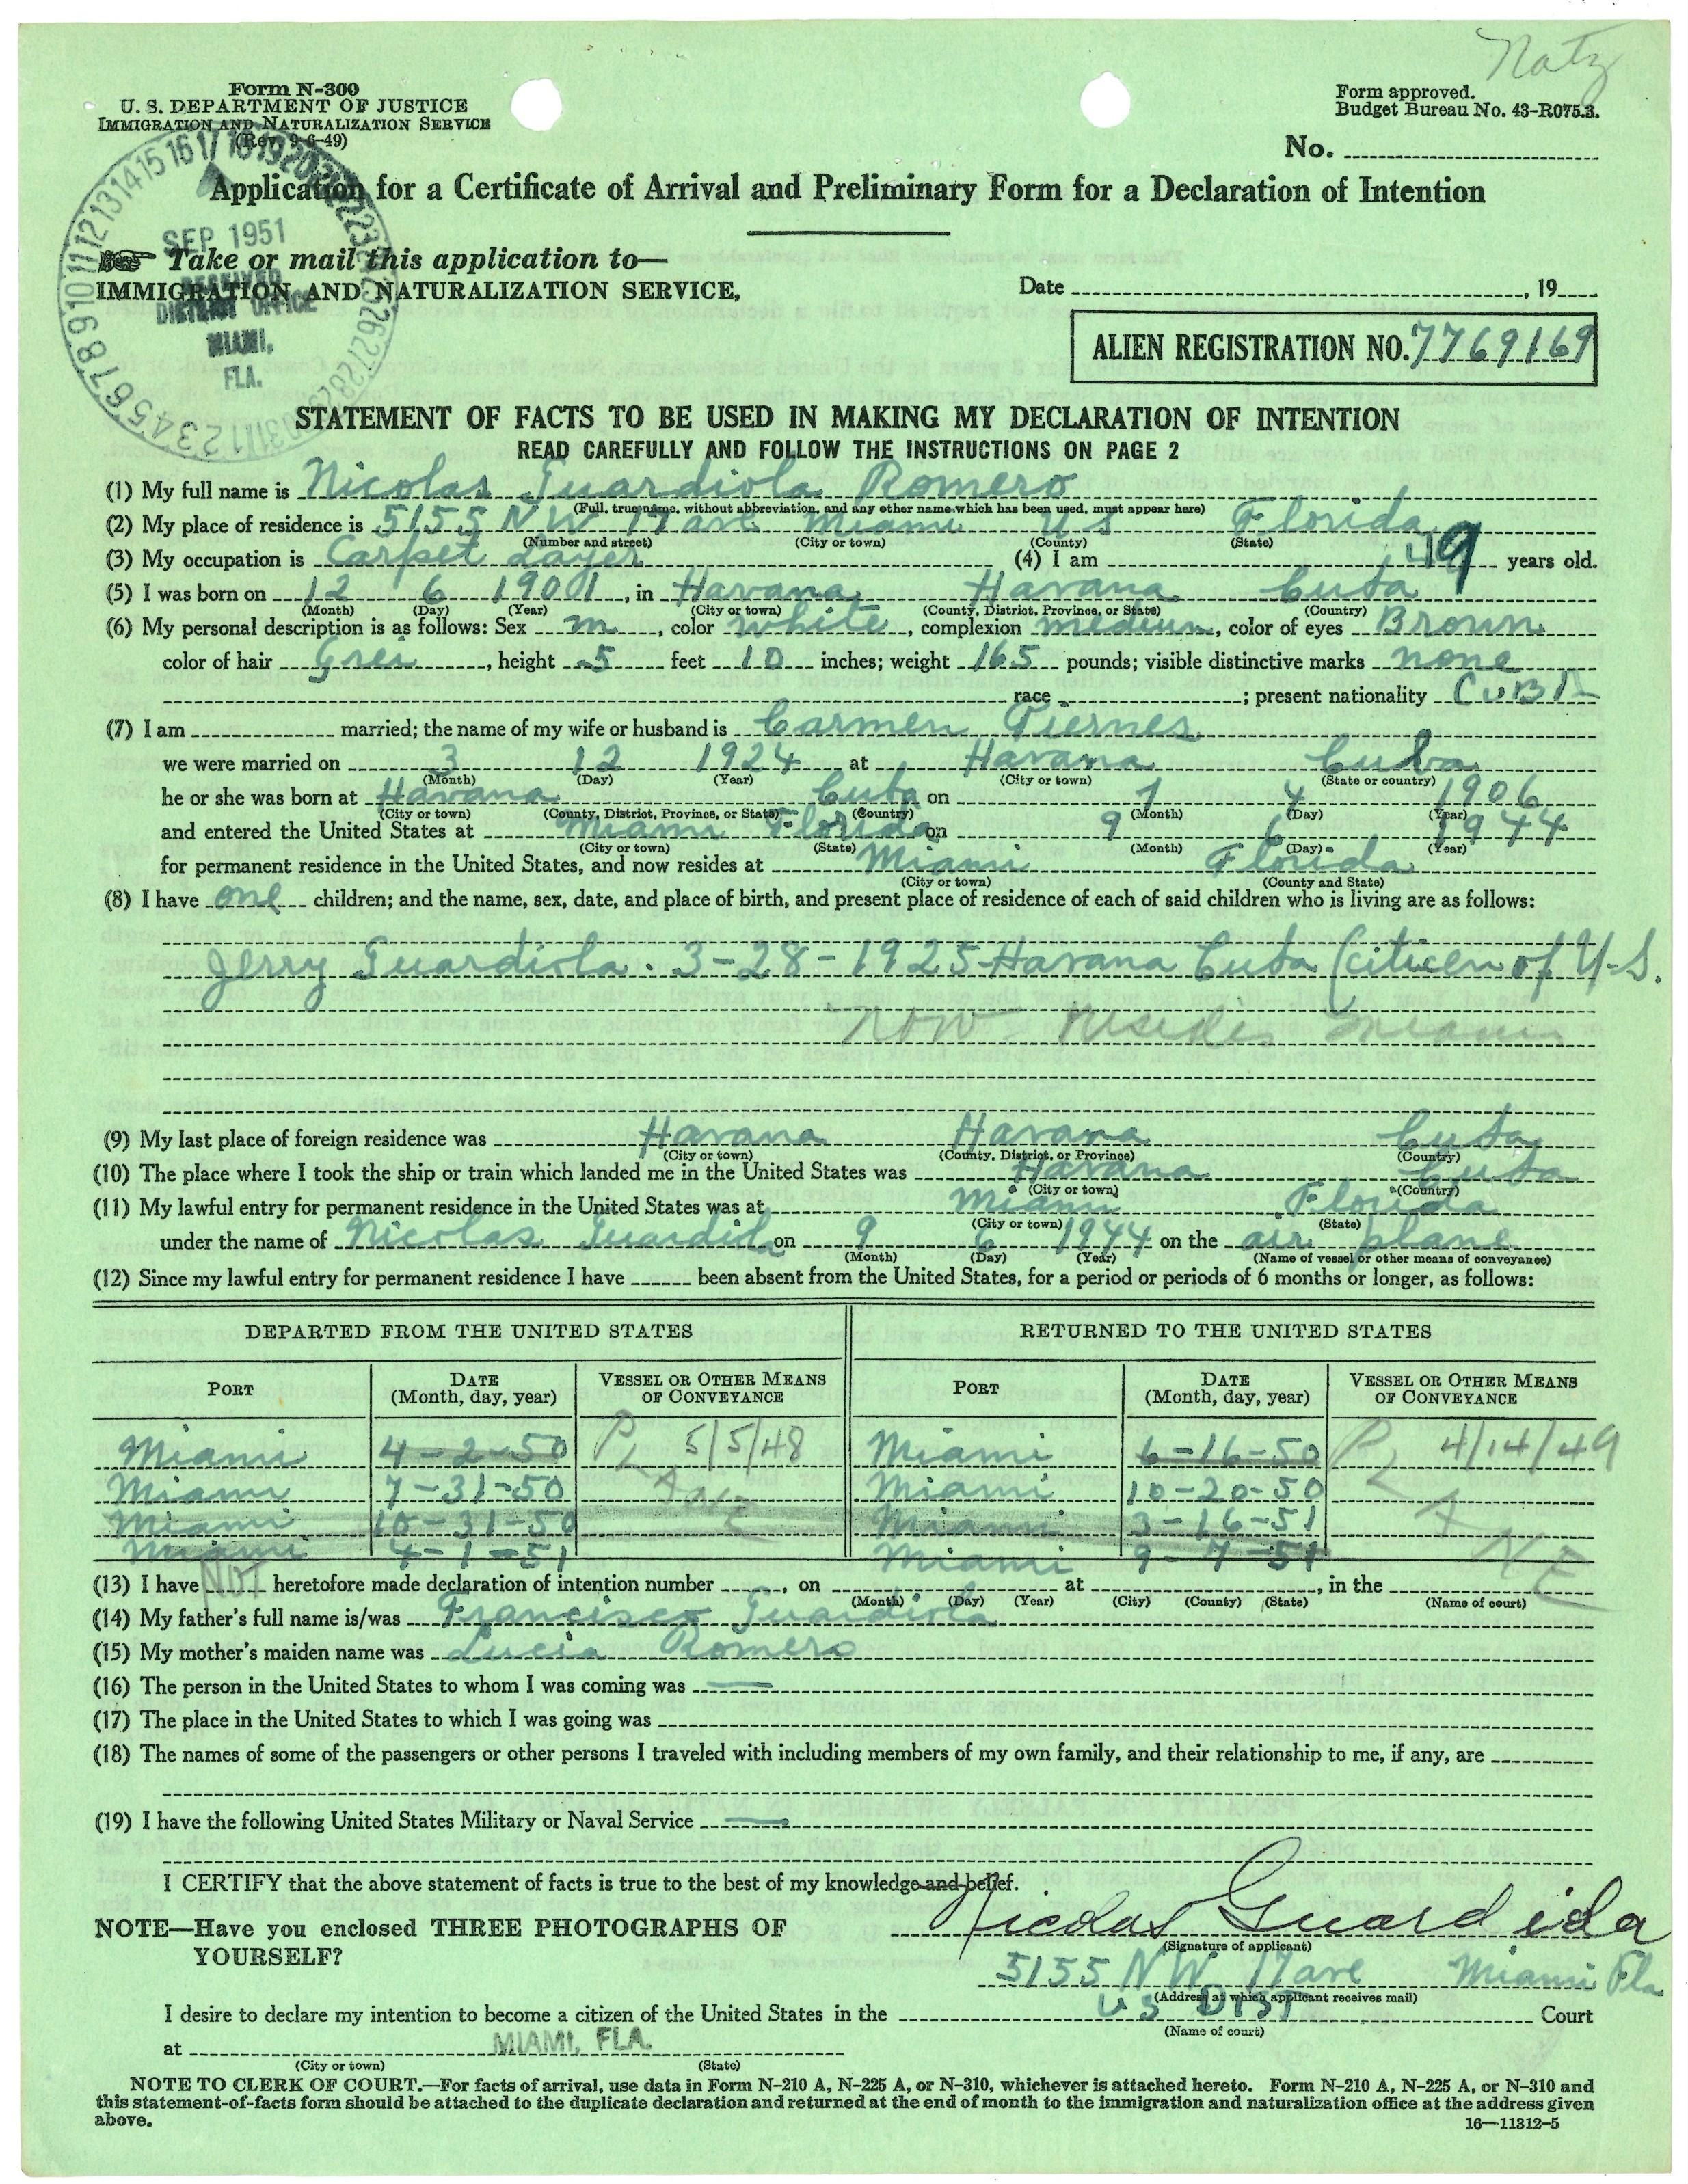 Natz
Form N-300
U. S. DEPARTMENT OF JUSTICE
IMMIGRATION AND NATURALIZATION SERVICE
(Rev. 9-6-49)
Form approved.
Budget Bureau No. 43-R075.3.
No.
Application for a Certificate of Arrival and Preliminary Form for a Declaration of Intention
SEP 1951
RECEIVED
DISTRICT OFFICE
MIAMI,
FLA.
Take or mail this application to—
IMMIGRATION AND NATURALIZATION SERVICE,
Date , 19
ALIEN REGISTRATION NO. 7769169
STATEMENT OF FACTS TO BE USED IN MAKING MY DECLARATION OF INTENTION
READ CAREFULLY AND FOLLOW THE INSTRUCTIONS ON PAGE 2
(1) My full name is Nicolas Guardiola Romero
(Full, true name, without abbreviation, and any other name which has been used, must appear here)
(2) My place of residence is 5155 NW 17 ave Miami US Florida
(Number and street) (City or town) (County) (State)
(3) My occupation is Carpet Layer (4) I am 49 years old.
(5) I was born on 12 6 1901, in Havana Havana Cuba
(Month) (Day) (Year) (City or town) (County, District, Province, or State) (Country)
(6) My personal description is as follows: Sex m, color white, complexion medium, color of eyes Brown
color of hair Grei, height 5 feet 10 inches; weight 165 pounds; visible distinctive marks none
race ; present nationality CUBA
(7) I am married; the name of my wife or husband is Carmen Piernes
we were married on 3 12 1924 at Havana Cuba
(Month) (Day) (Year) (City or town) (State or country)
he or she was born at Havana Cuba on 7 4 1906
(City or town) (County, District, Province, or State) (Country) (Month) (Day) (Year)
and entered the United States at Miami Florida on 9 6 1944
(City or town) (State) (Month) (Day) (Year)
for permanent residence in the United States, and now resides at Miami Florida
(City or town) (County and State)
(8) I have one children; and the name, sex, date, and place of birth, and present place of residence of each of said children who is living are as follows:
Jerry Guardiola. 3-28-1925 Havana Cuba (citicen of U-S.
NOW Resides Miami
(9) My last place of foreign residence was Havana Havana Cuba
(City or town) (County, District, or Province) (Country)
(10) The place where I took the ship or train which landed me in the United States was Havana Cuba
(City or town) (Country)
(11) My lawful entry for permanent residence in the United States was at Miami Florida
(City or town) (State)
under the name of Nicolas Guardiola on 9 6 1944 on the air plane
(Month) (Day) (Year) (Name of vessel or other means of conveyance)
(12) Since my lawful entry for permanent residence I have been absent from the United States, for a period or periods of 6 months or longer, as follows:
DEPARTED FROM THE UNITED STATES RETURNED TO THE UNITED STATES
PORT DATE (Month, day, year) VESSEL OR OTHER MEANS OF CONVEYANCE PORT DATE (Month, day, year) VESSEL OR OTHER MEANS OF CONVEYANCE
Miami 4-2-50 PL 5/5/48 Miami 6-16-50 PL 4/14/49
Miami 7-31-50 Miami 10-20-50
Miami 10-31-50 Miami 3-16-51
Miami 4-1-51 Miami 9-7-51
(13) I have NOT heretofore made declaration of intention number , on at , in the
(Month) (Day) (Year) (City) (County) (State) (Name of court)
(14) My father's full name is/was Francisco Guardiola
(15) My mother's maiden name was Lucia Romero
(16) The person in the United States to whom I was coming was —
(17) The place in the United States to which I was going was
(18) The names of some of the passengers or other persons I traveled with including members of my own family, and their relationship to me, if any, are
(19) I have the following United States Military or Naval Service —
I CERTIFY that the above statement of facts is true to the best of my knowledge and belief.
NOTE—Have you enclosed THREE PHOTOGRAPHS OF
YOURSELF?
Nicolas Guardiola
(Signature of applicant)
5155 NW 17 ave Miami Fla
(Address at which applicant receives mail)
I desire to declare my intention to become a citizen of the United States in the US DIST Court
(Name of court)
at MIAMI, FLA.
(City or town) (State)
NOTE TO CLERK OF COURT.—For facts of arrival, use data in Form N-210 A, N-225 A, or N-310, whichever is attached hereto. Form N-210 A, N-225 A, or N-310 and
this statement-of-facts form should be attached to the duplicate declaration and returned at the end of month to the immigration and naturalization office at the address given
above.
16—11312-5